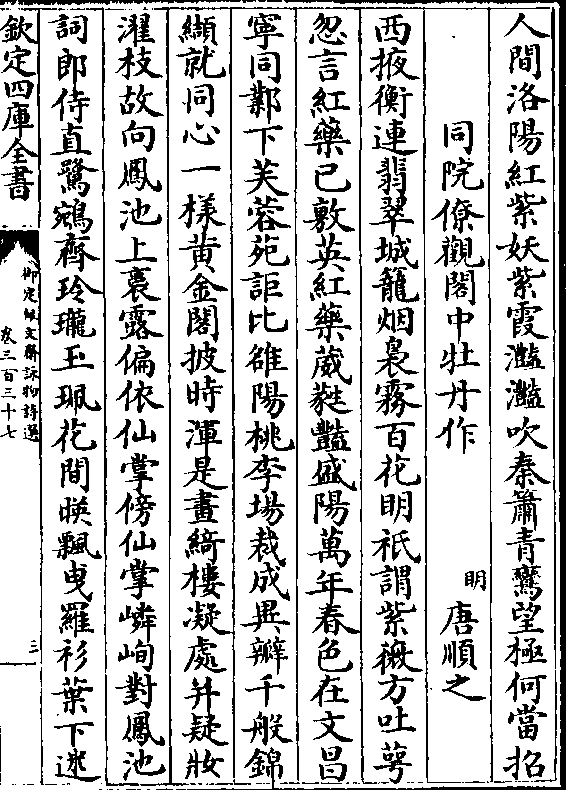 人間洛陽紅紫妖紫霞灩灩吹秦簫青鸞望極何當招
同院僚觀閣中牡丹作
明 唐順之
西掖衡連翡翠城籠烟裊霧百花明祇謂紫薇方吐萼
忽言紅藥已敷英紅藥葳蕤豔盛陽萬年春色在文昌
寧同鄴下芙蓉苑詎比雒陽桃李場裁成異瓣千般錦
纈就同心一樣黃金閣披時渾是畫綺樓凝處并疑妝
濯枝故向鳳池上裛露偏依仙掌傍仙掌嶙峋對鳳池
詞郎侍直鷺鵷齊玲瓏玉珮花間映飄曳羅衫葉下迷
欽定四庫全書
御定佩文齋詠物詩選
卷三百三十七
三